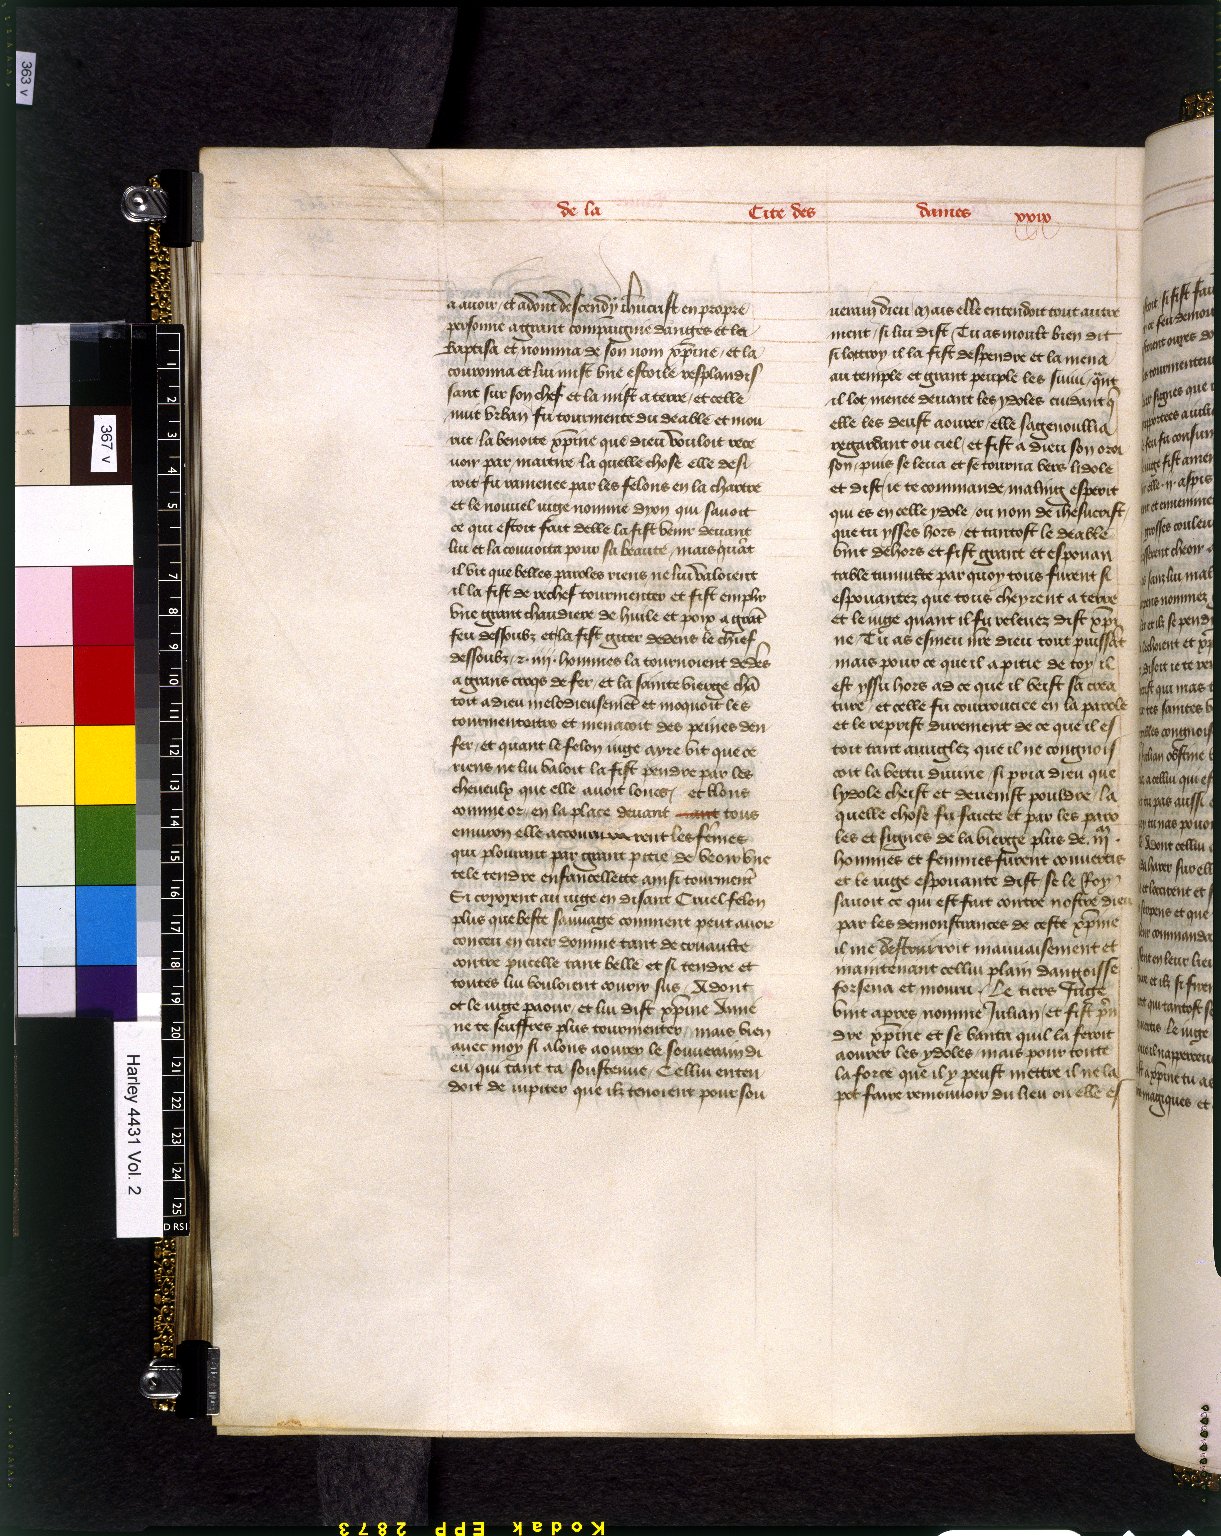 363 v
367 v
Harley 4431 Vol. 2
de la Cite des dames xxix
a auoir / et adont descendy ihucrist en propre
personne a grant compaignie danges et la
baptisa et nomma de son nom xpine / et la
couronna et lui mist vne estoile resplandis
sant sur son chef et la mist a terre / et celle
nuit vrban fu tourmente du deable et mou
rut / la benoite xpine que dieu vouloit rece
uoir par martire la quelle chose elle desi
roit fu ramenee par les felons en la chartre
et le nouuel iuge nomme dyon qui sauoit
ce qui estoit fait delle la fist venir deuant
lui et la couuoita pour sa beaute / mais quāt
il vit que belles paroles riens ne lui valoient
il la fist de rechef tourmenter et fist emplir
vne grant chaudiere de huile et poix a grāt
feu dessoubz et la fist giter dedens le chief
dessoubz / et .iiii. hommes la tournoient dedēs
a grans croqs de fer / et la sainte vierge chā
toit a dieu melodieusement et moquoit les
tourmenteurs et menacoit des peines den
fer / et quant le felon iuge ayre vit que ce
riens ne lui valoit la fist pendre par les
cheueulx que elle auoit loncs / et blons
comme or / en la place deuant tous
enuiron elle accouroient les fēmes
qui plourant par grant pitie de veoir vne
tele tendre enfancellette ainsi tourmentē
Si crioyent au iuge en disant Cruel felon
plus que beste sauuage comment peut auoir
conceu en cuer domme tant de cruaulte
contre pucelle tant belle et si tendre et
toutes lui vouloient courir sus / Adont
ot le iuge paour / et lui dist xpine Amie
ne te seuffres plus tourmenter / mais vien
auec moy si alons aourer le souuerain di
eu qui tant ta soustenue / Cellui enten
doit de iupiter que ilz tenoient pour sou
uerain dieu / Mais elle entendoit tout autre
ment / si lui dist / Tu as moult bien dit
si lottroy il la fist despendre et la mena
au temple et grant peuple les suiui / quāt
il lot menee deuant les ydoles cuidant q̄
elle les deust aourer / elle sagenoullia
regardant ou ciel / et fist a dieu son oroi
son / puis se leua et se tourna vers lidole
et dist / ie te commande / maling esperit
qui es en celle ydole / ou nom de ihesucrist /
que tu ysses hors / et tantost le deable
vint dehors et fist grant et espouen
table tumulte par quoy tous furent si
espouantez que tous cheyrent a terre
et le iuge quant il fu releuez dist xpi
ne / Tu as esmeu nr̄e dieu tout puissāt
mais pour ce que il a pitie de toy il
est yssu hors ad ce que il veist sa crea
ture / et celle fu courroucee en la parole
et le reprist durement de ce que il es
toit tant auuglez que il ne congnois
soit la vertu diuine / si pria dieu que
lydole cheist et deuenist pouldre / la
quelle chose fu faicte et par les paro
les et signes de la vierge plus de .iii.m.
hommes et femmes furent conuertis
et le iuge espouante dist se le Roy
sauoit ce qui est fait contre nostre dieu
par les demonstrances de ceste xpine
il me destruiroit mauuaisement et
maintenant cellui plain dangoisse
forsena et mouru / Le tiers Juge
vint apres nomme Julian / et fist prē
dre xpine et se vanta quil la feroit
aourer les ydoles / mais pour toute
la force que il y peust mettre il ne la
pot faire remouuoir du lieu ou elle es
Kodak EPP 2873